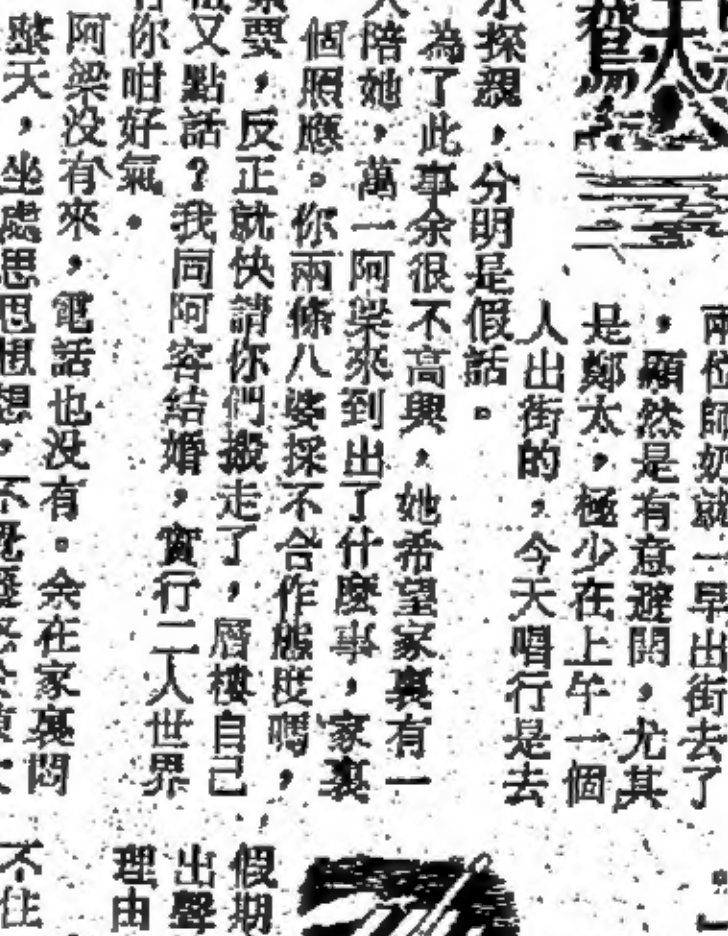 兩位師奶就一早出街去了
，顯然是有意避開，尤其
是鄭太，極少在上午一個
人出街的，今天唱行是去
探親，分明是假話。
為了此事余很不高興，她希望家裏有一
陪她，萬一阿梁來到出了什麼事，家裏
個照應。你兩條八婆採不合作態度嗎，
要，反正就快請你們搬走了，層樓自己
又點話？我同阿容結婚，實行二人世界
你咁好氣。
阿梁没有來，電話也没有。余在家裏悶
整天，坐處思思想想，不覺
假期
出聲
理由
不住